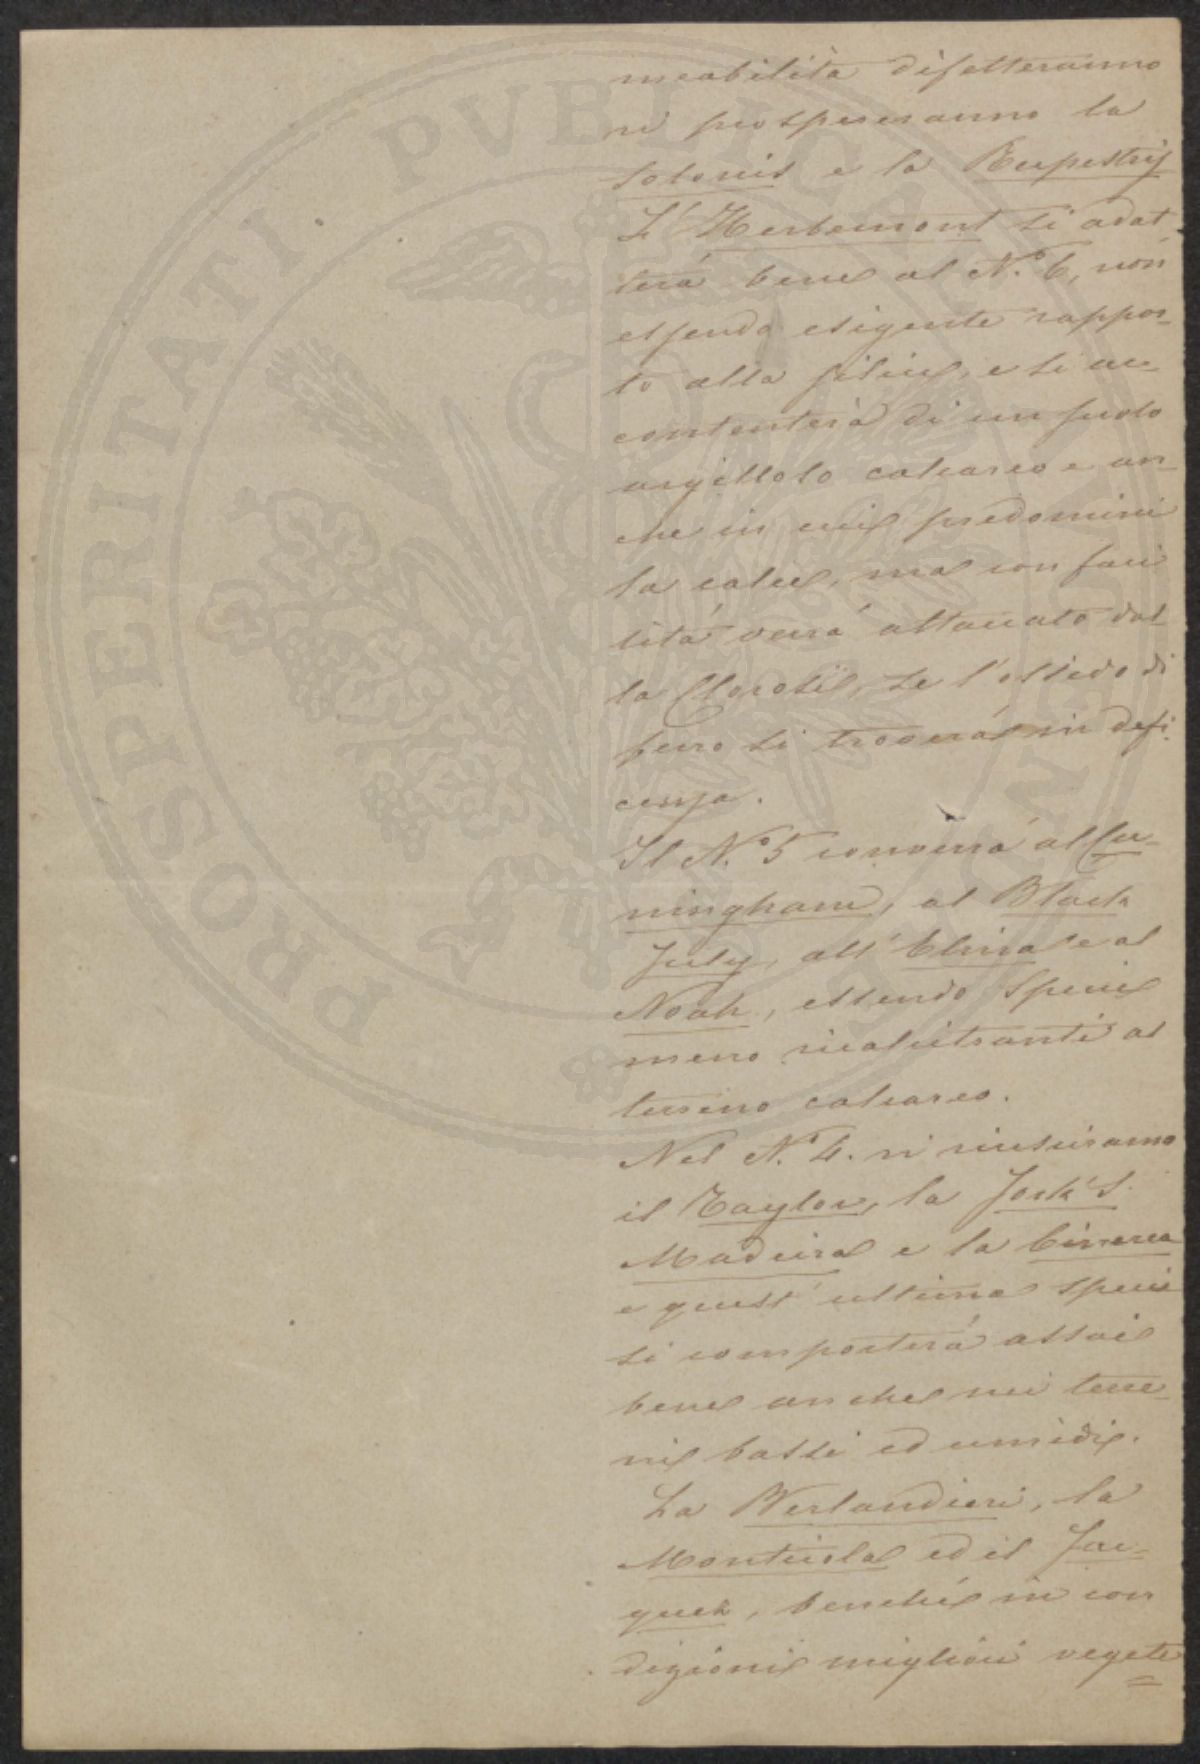 meabilità difetteranno
vi prospereranno la
Solonis e la Rupestris
L'Herbemont si adat
terà bene al N.° 6, non
essendo esigente rappor-
to alla silice, e si ac-
contenterà di un suolo
argilloso calcareo e an-
che in cui predomini
la calce, ma con faci
lità verrà attaccato dal-
la Clorosi, se l'ossido di
ferro si troverà in defi-
cenza.
Il N.° 5 converrà al Cu-
ningham, al Black
July, all'Elvira e al
Noah, essendo specie
meno ricalcitranti al
terreno calcareo.
Nel N.° 4. vi riusciranno
il Taylor, la York'S.
Madeira e la Cinerea
e quest'ultima specie
si comporterà assai
bene anche nei terre-
ni bassi ed umidi.
La Berlandieri, la
Monticola ed il Jac-
quez, benchè in con
dizioni migliori vegete
PROSPERITATI PVBLICAE